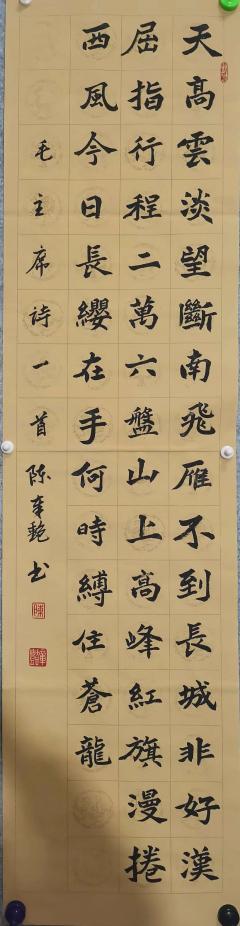 天高雲淡望斷南飛雁不到長城非好漢
屈指行程二萬六盤山上高峰紅旗漫捲
西風今日長纓在手何時縛住蒼龍
毛主席诗一首
陈 艳书